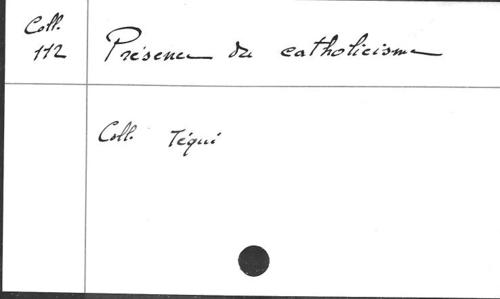 Coll.
112
Présence du catholicisme
Coll. Téqui